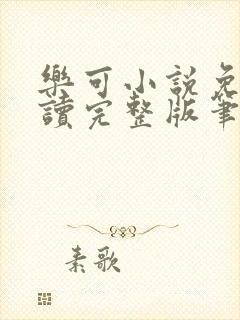 樂可小説免
讀完整版筆
素歌